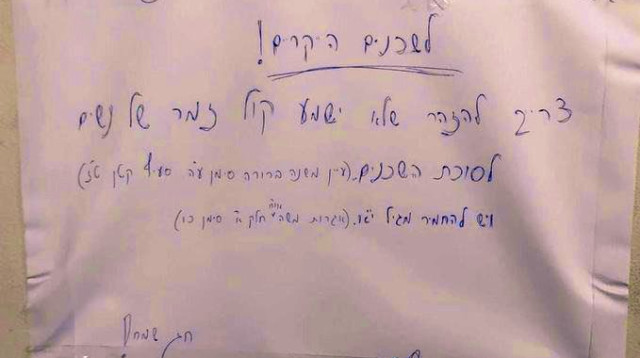 לשכנים היקרים!
צריך להזהר שלא ישמע קול זמר של נשים
לסוכת השכנים. (עיין משנה ברורה סימן ע"ה סעיף קטן ט"ז)
ויש להחמיר מגיל י"א. (אגרות משה או"ח חלק א' סימן כו)
חג שמח